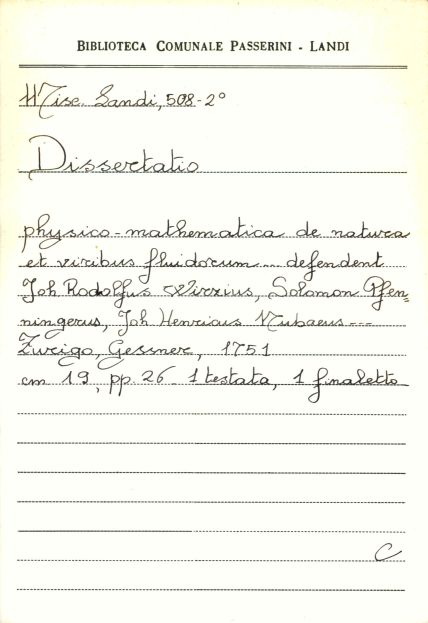 BIBLIOTECA COMUNALE PASSERINI - LANDI
Misc. Landi, 508-2°
Dissertatio
physico-mathematica de natura
et viribus fluidorum... defendent
Joh Rodolfus Wirzius, Solomon Pfen=
ningerus, Joh Henricus Nubaeus---
Zurigo, Gesner, 1751
cm 19, pp. 26 - 1 testata, 1 finaletto
C